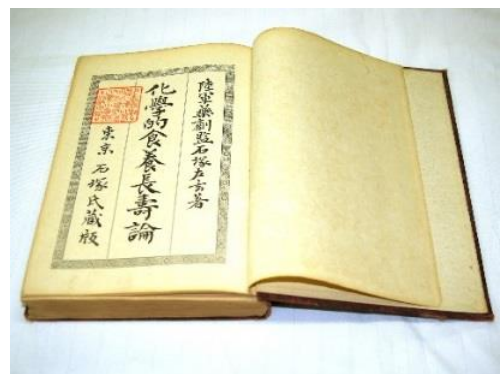 陸軍薬剤監石塚左玄著
化學的食養長壽論
東京 石塚氏蔵版